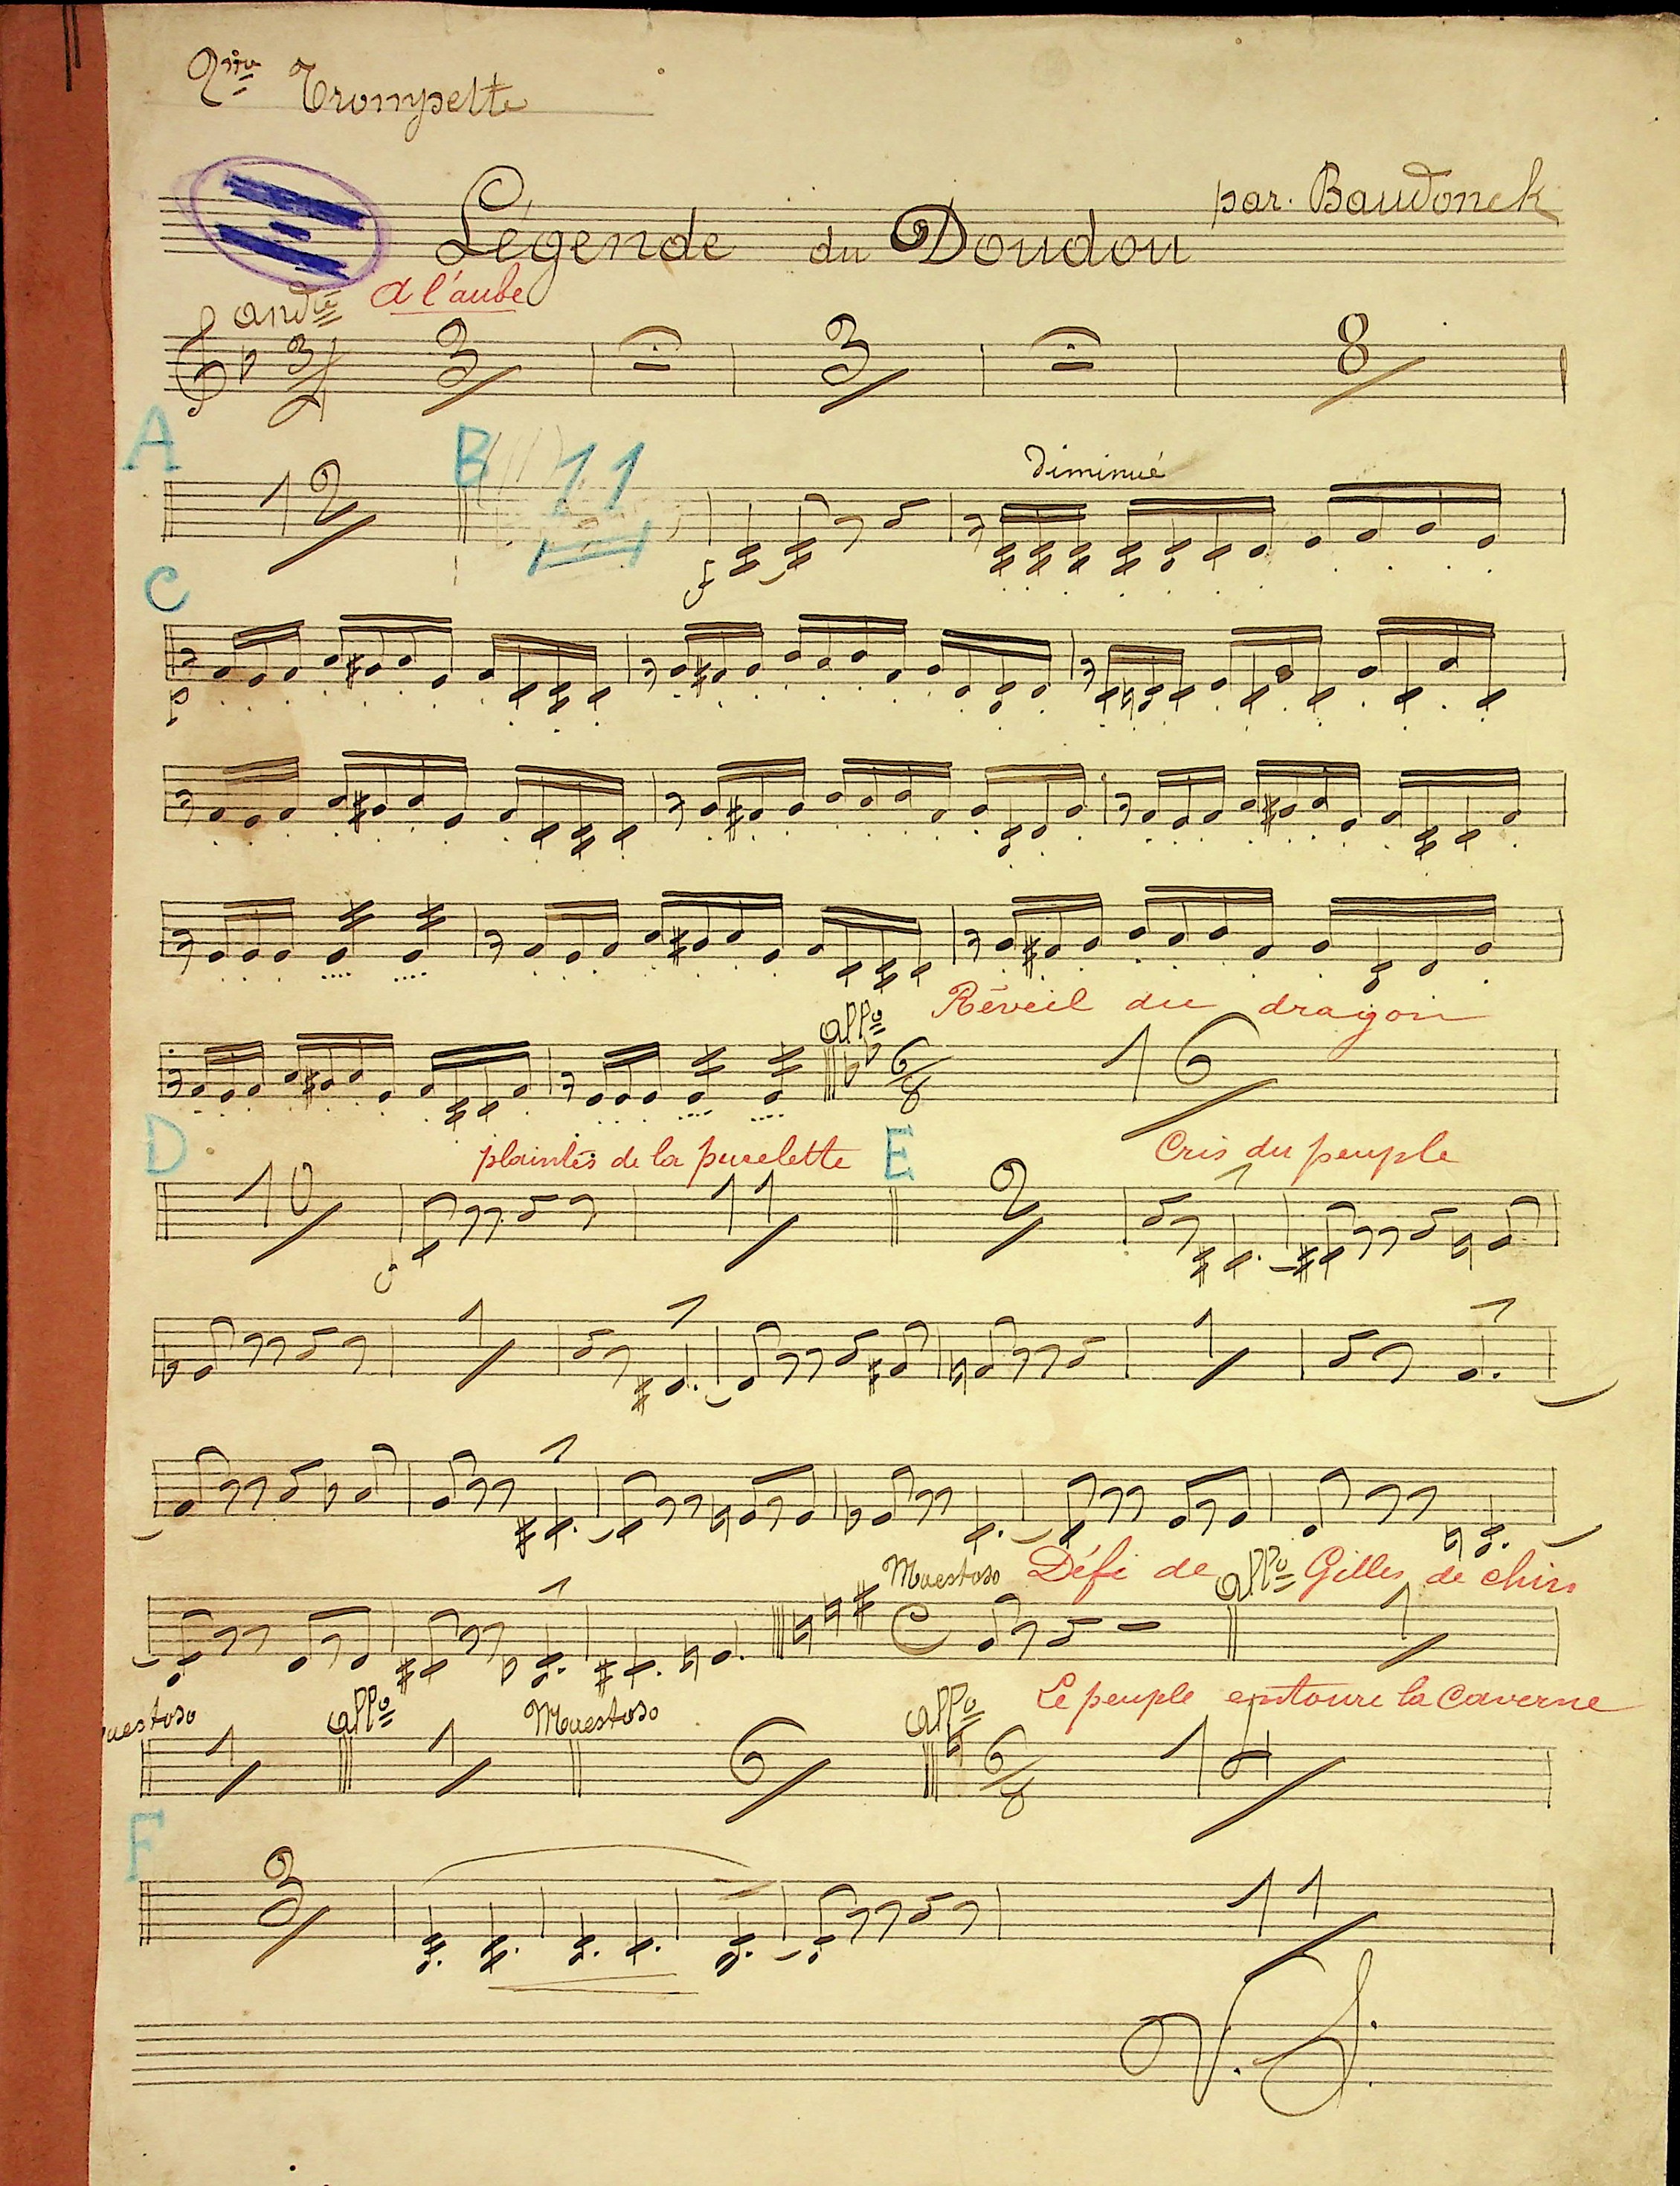 2me Trompette
Légende du Doudou
par. Baudonck
andte
a l'aube
3 4 3 3 8
A 12 B 11
diminué
C
p
allo
Réveil du dragon
6 8 16
D 10
plaintes de la pucelette
11
E 2
Cris du peuple
1
1 1 1 1
1
Maestoso
Défi de Gilles de chin
allo
1 C 1
allo
Maestoso
allo
Le peuple entoure la Caverne
1 1 6 6 8 14
F 3 11
V. S.